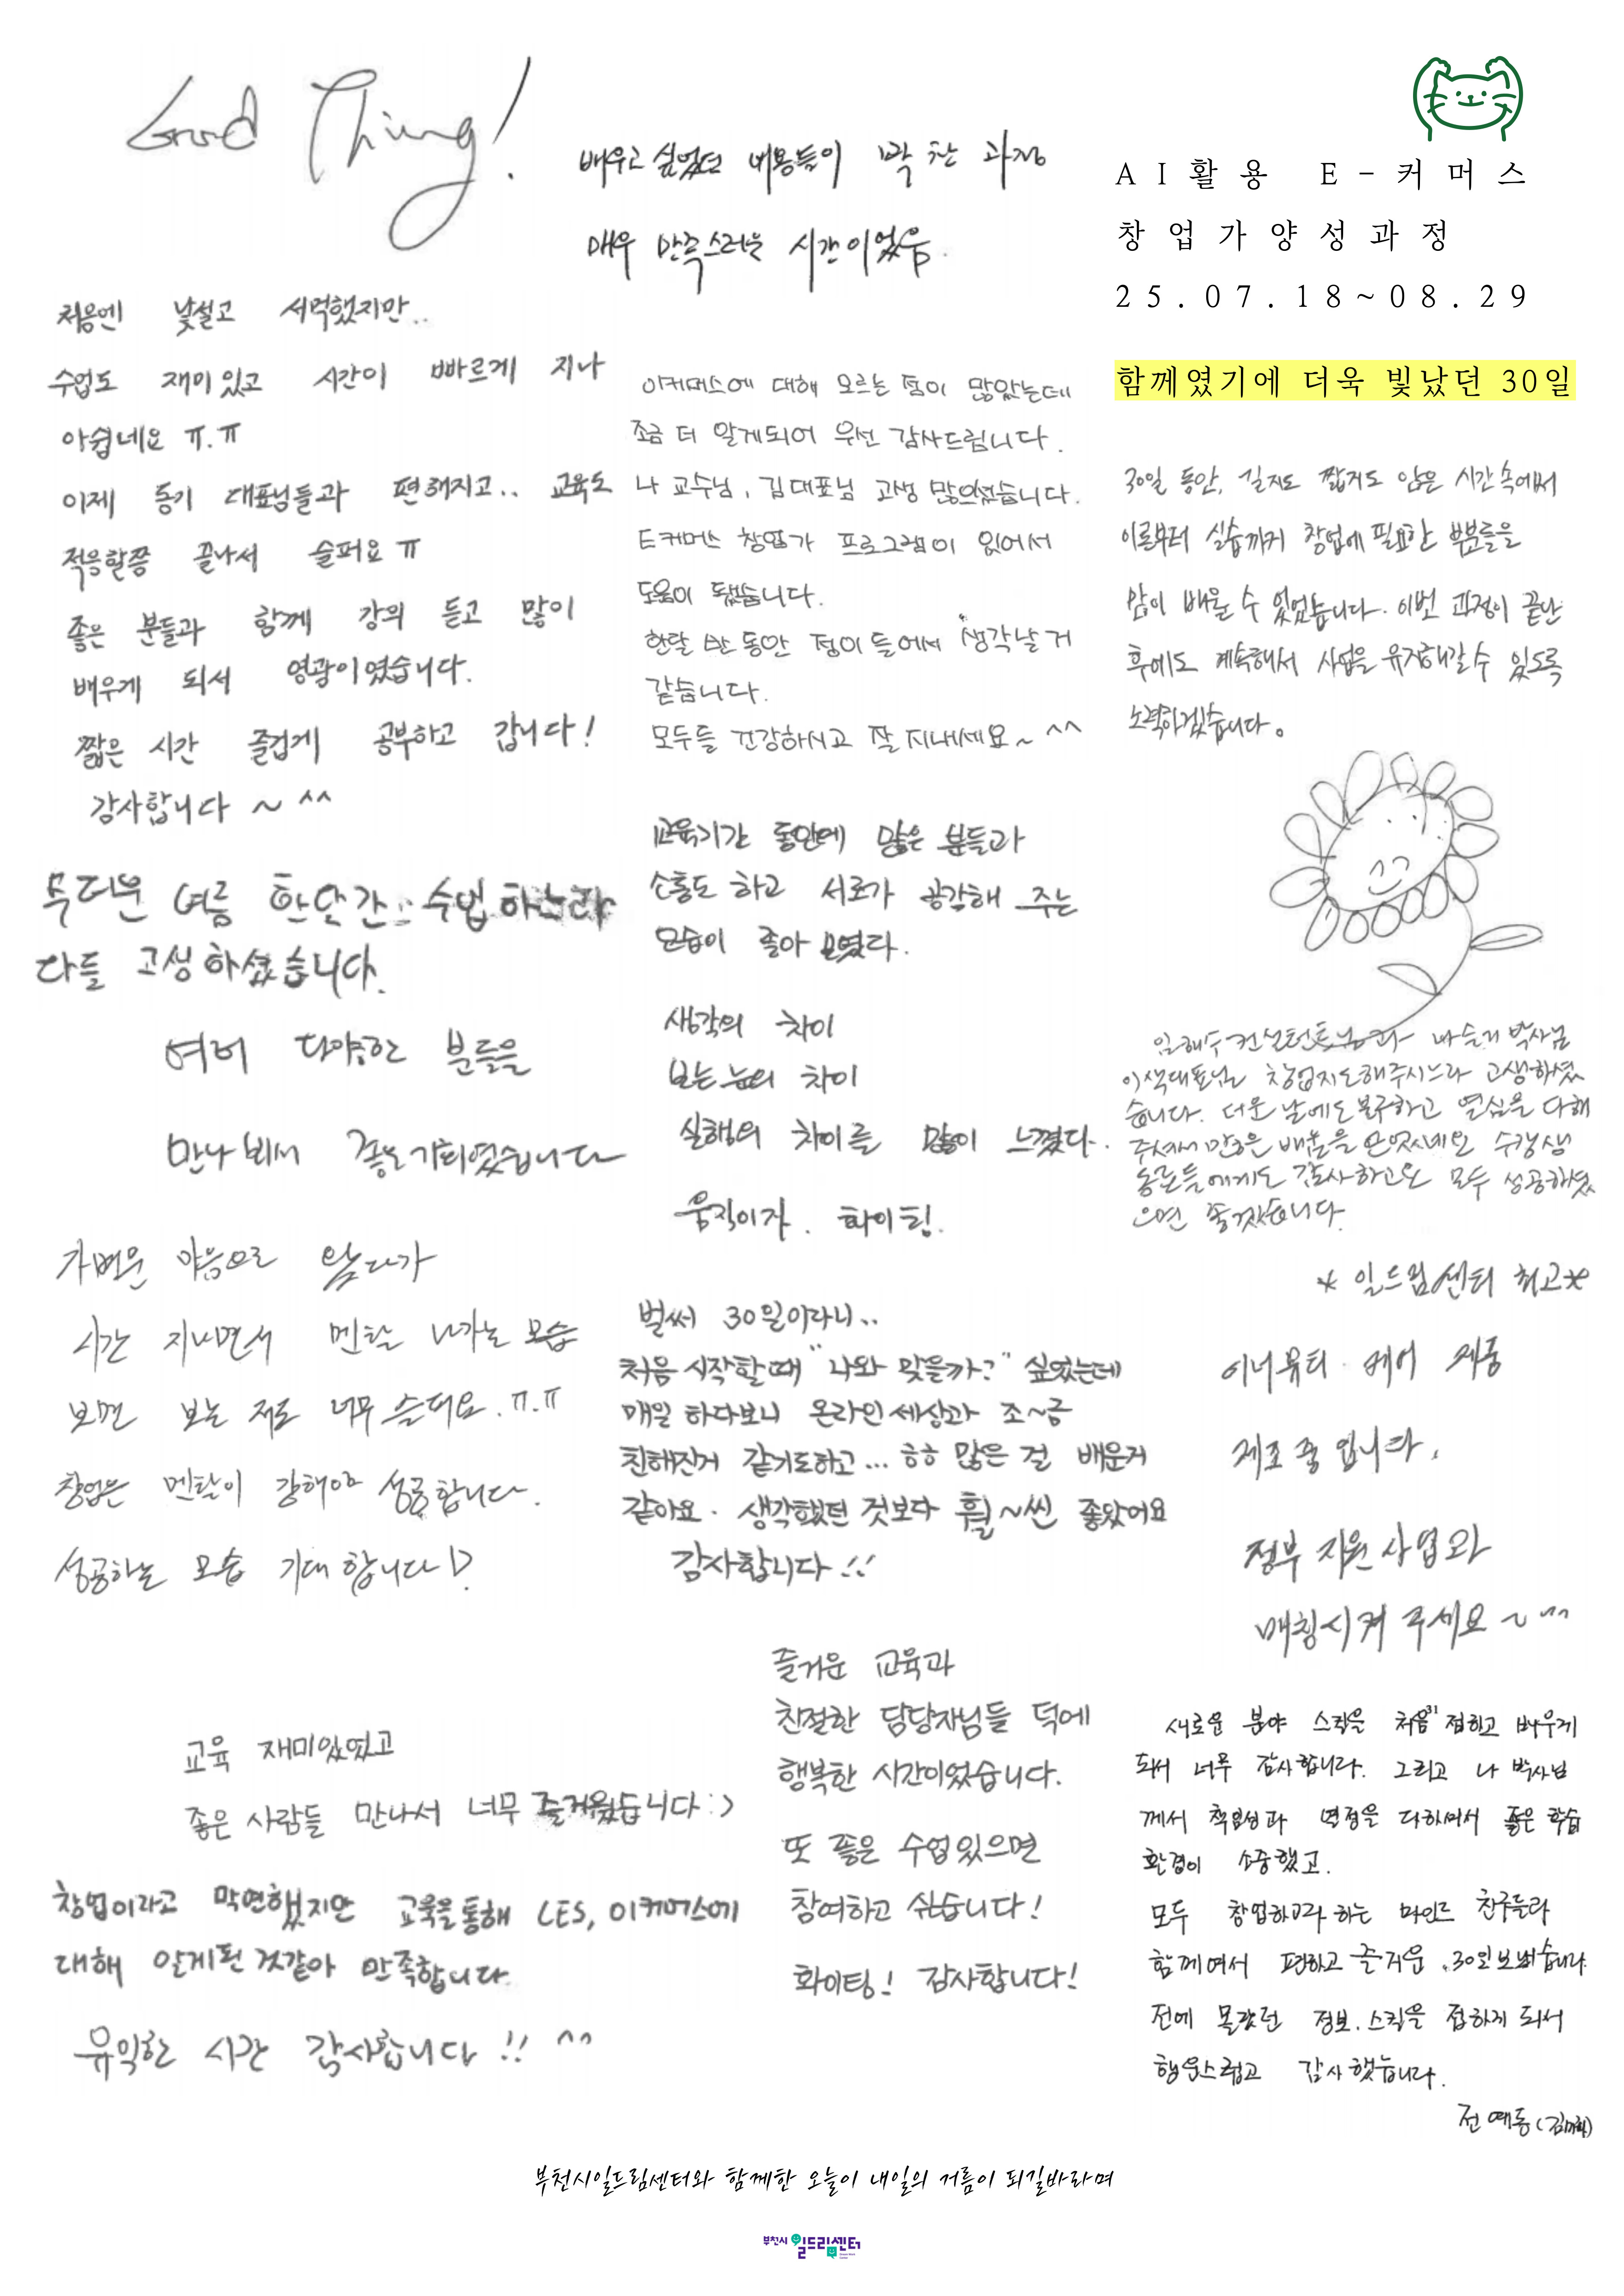 Good Thing!
배우고 싶었던 내용들이 꽉 찬 과정
매우 만족스러운 시간이었음.
AI활용 E-커머스
창업가양성과정
25.07.18~08.29
함께였기에 더욱 빛났던 30일
처음엔 낯설고 서먹했지만..
수업도 재미있고 시간이 빠르게 지나
아쉽네요 ㅠ.ㅠ
이제 동기 대표님들과 편해지고.. 교육도
적응할쯤 끝나서 슬퍼요 ㅠ
좋은 분들과 함께 강의 듣고 많이
배우게 되서 영광이였습니다.
짧은 시간 즐겁게 공부하고 갑니다!
감사합니다 ~ ^^
무더운 여름 한달간 수업하느라
다들 고생하셨습니다.
여러 다양한 분들을
만나 뵈서 좋은기회였습니다
가벼운 마음으로 왔다가
시간 지나면서 멘탈 나가는 모습
보면 보는 저도 너무 슬퍼요.ㅠ.ㅠ
창업은 멘탈이 강해야 성공합니다.
성공하는 모습 기대합니다!
교육 재미있었고
좋은 사람들 만나서 너무 즐거웠습니다:)
창업이라고 막연했지만 교육을통해 CES, 이커머스에
대해 알게된것같아 만족합니다.
유익한 시간 감사합니다!! ^^
이커머스에 대해 모르는 점이 많았는데
조금 더 알게되어 우선 감사드립니다.
나 교수님, 김대표님 고생 많으셨습니다.
E커머스 창업가 프로그램이 있어서
도움이 됐습니다.
한달 반 동안 정이 들어서 생각날거
같습니다.
모두들 건강하시고 잘 지내세요~ ^^
교육기간 동안에 많은 분들과
소통도 하고 서로가 공감해 주는
모습이 좋아 보였다.
생각의 차이
보는눈의 차이
실행의 차이를 많이 느꼈다.
움직이자. 화이팅.
벌써 30일이라니..
처음 시작할때 "나와 맞을까?" 싶었는데
매일 하다보니 온라인세상과 조~금
친해진거 같기도하고... ㅎㅎ 많은 걸 배운거
같아요. 생각했던 것보다 훨~씬 좋았어요
감사합니다!!
즐거운 교육과
친절한 담당자님들 덕에
행복한 시간이었습니다.
또 좋은 수업있으면
참여하고 싶습니다!
화이팅! 감사합니다!
30일 동안, 길지도 짧지도 않은 시간속에서
이론부터 실습까지 창업에 필요한 부분들을
많이 배울 수 있었습니다. 이번 과정이 끝난
후에도 계속해서 사업을 유지해갈수 있도록
노력하겠습니다.
임해수 컨설턴트님과 나슬기 박사님
이색대표님 창업지도해주시느라 고생하셨
습니다. 더운 날에도불구하고 열심을 다해
주셔서 많은 배움을 얻었네요 수강생
동료들에게도 감사하고요 모두 성공하셨
으면 좋겠습니다.
* 일드림센터 최고*
이너뷰티 . 헤어 제품
제조 중 입니다.
정부 지원 사업과
매칭시켜 주세요~^^
새로운 분야 스킬은 처음 접하고 배우게
되서 너무 감사합니다. 그리고 나 박사님
께서 책임성과 열정을 다하셔서 좋은 학습
환경이 소중했고.
모두 창업하고자 하는 마인드 친구들과
함께여서 편하고 즐거운 30일보냈습니다.
전에 몰랐던 정보.스킬을 접하게 되서
행운스럽고 감사했습니다.
전예동
부천시일드림센터와 함께한 오늘이 내일의 거름이 되길바라며
부천시 일드림센터